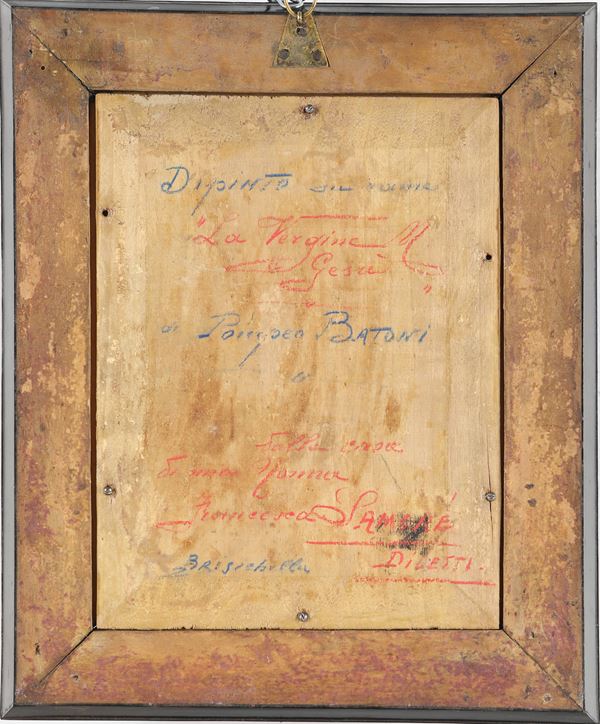 DIPINTO su rame
"La Vergine M
e Gesù"
di Pompeo BATONI
dalla casa
di mia Nonna
Francesca
DILETTI.
BRISighella